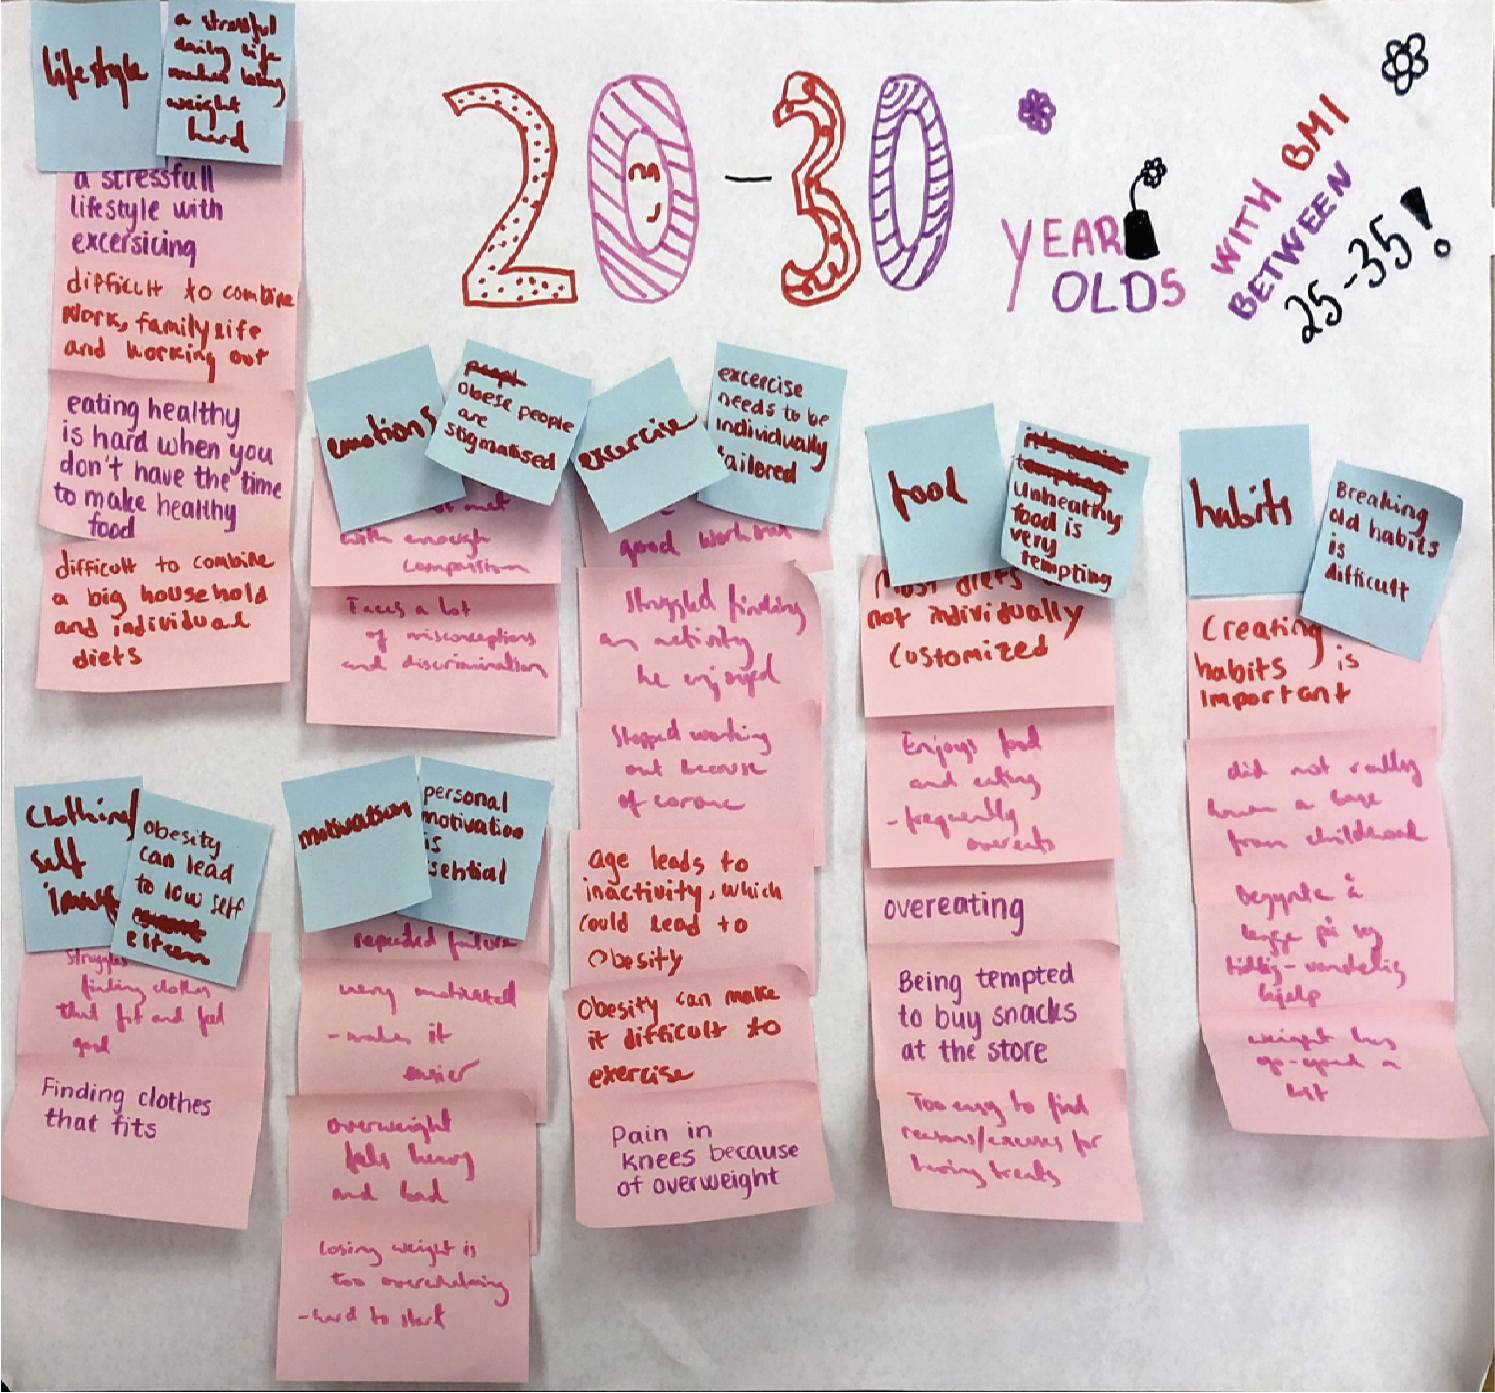 20-30
YEAR
OLDS
WITH BMI
BETWEEN
25-35!
lifestyle
a stressful
daily life
makes losing
weight
hard
a stressfull
lifestyle with
excersicing
difficult to combine
work, family life
and working out
eating healthy
is hard when you
don't have the time
to make healthy
food
difficult to combine
a big household
and individual
diets
emotions
obese people
are
stigmatised
met
with enough
compassion
Faces a lot
of misconceptions
and discrimination
exercise
excercise
needs to be
individually
tailored
good workout
Struggled finding
an activity
he enjoyed
Stopped working
out because
of corona
age leads to
inactivity, which
could lead to
Obesity
Obesity can make
it difficult to
exercise
Pain in
knees because
of overweight
food
Unhealthy
food is
very
tempting
most diets
not individually
customized
Enjoys food
and eating
- frequently
overeats
overeating
Being tempted
to buy snacks
at the store
Too easy to find
reasons/excuses for
having treats
habits
Breaking
old habits
is
difficult
Creating
habits is
important
did not really
have a base
from childhood
Begynte å
legge på seg
tidlig-vanskelig
hjelp
weight has
a
lot
clothing/
self
image
obesity
can lead
to low self
esteem
Struggles
finding clothes
that fit and feel
good
Finding clothes
that fits
motivation
personal
motivation
is
sential
repeated failure
very motivated
- makes it
easier
overweight
feels heavy
and bad
Losing weight is
too overwhelming
- hard to start